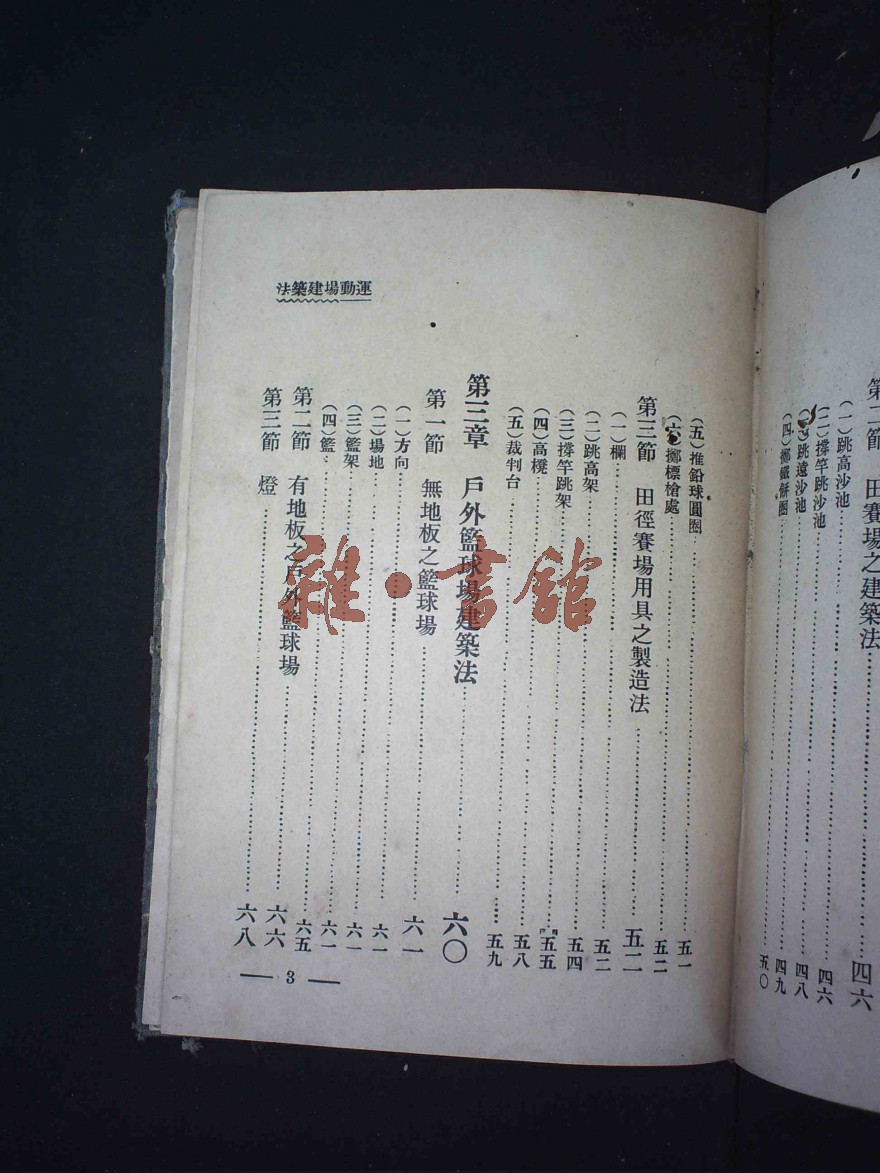 第二節 田賽場之建築法……四六
(一)跳高沙池……四六
(二)撐竿跳沙池……四八
(三)跳遠沙池……四九
(四)擲鐵餅圈……五〇
運動場建築法
(五)推鉛球圓圈……五一
(六)擲標槍處……五二
第三節 田徑賽場用具之製造法……五二
(一)欄……五二
(二)跳高架……五四
(三)撐竿跳架……五五
(四)高櫈……五八
(五)裁判台……五九
第三章 戶外籃球場建築法……六〇
第一節 無地板之籃球場……六一
(一)方向……六一
(二)場地……六一
(三)籃架……六一
(四)籃……六五
第二節 有地板之戶外籃球場……六六
第三節 燈……六八
— 3 —
雜·書館